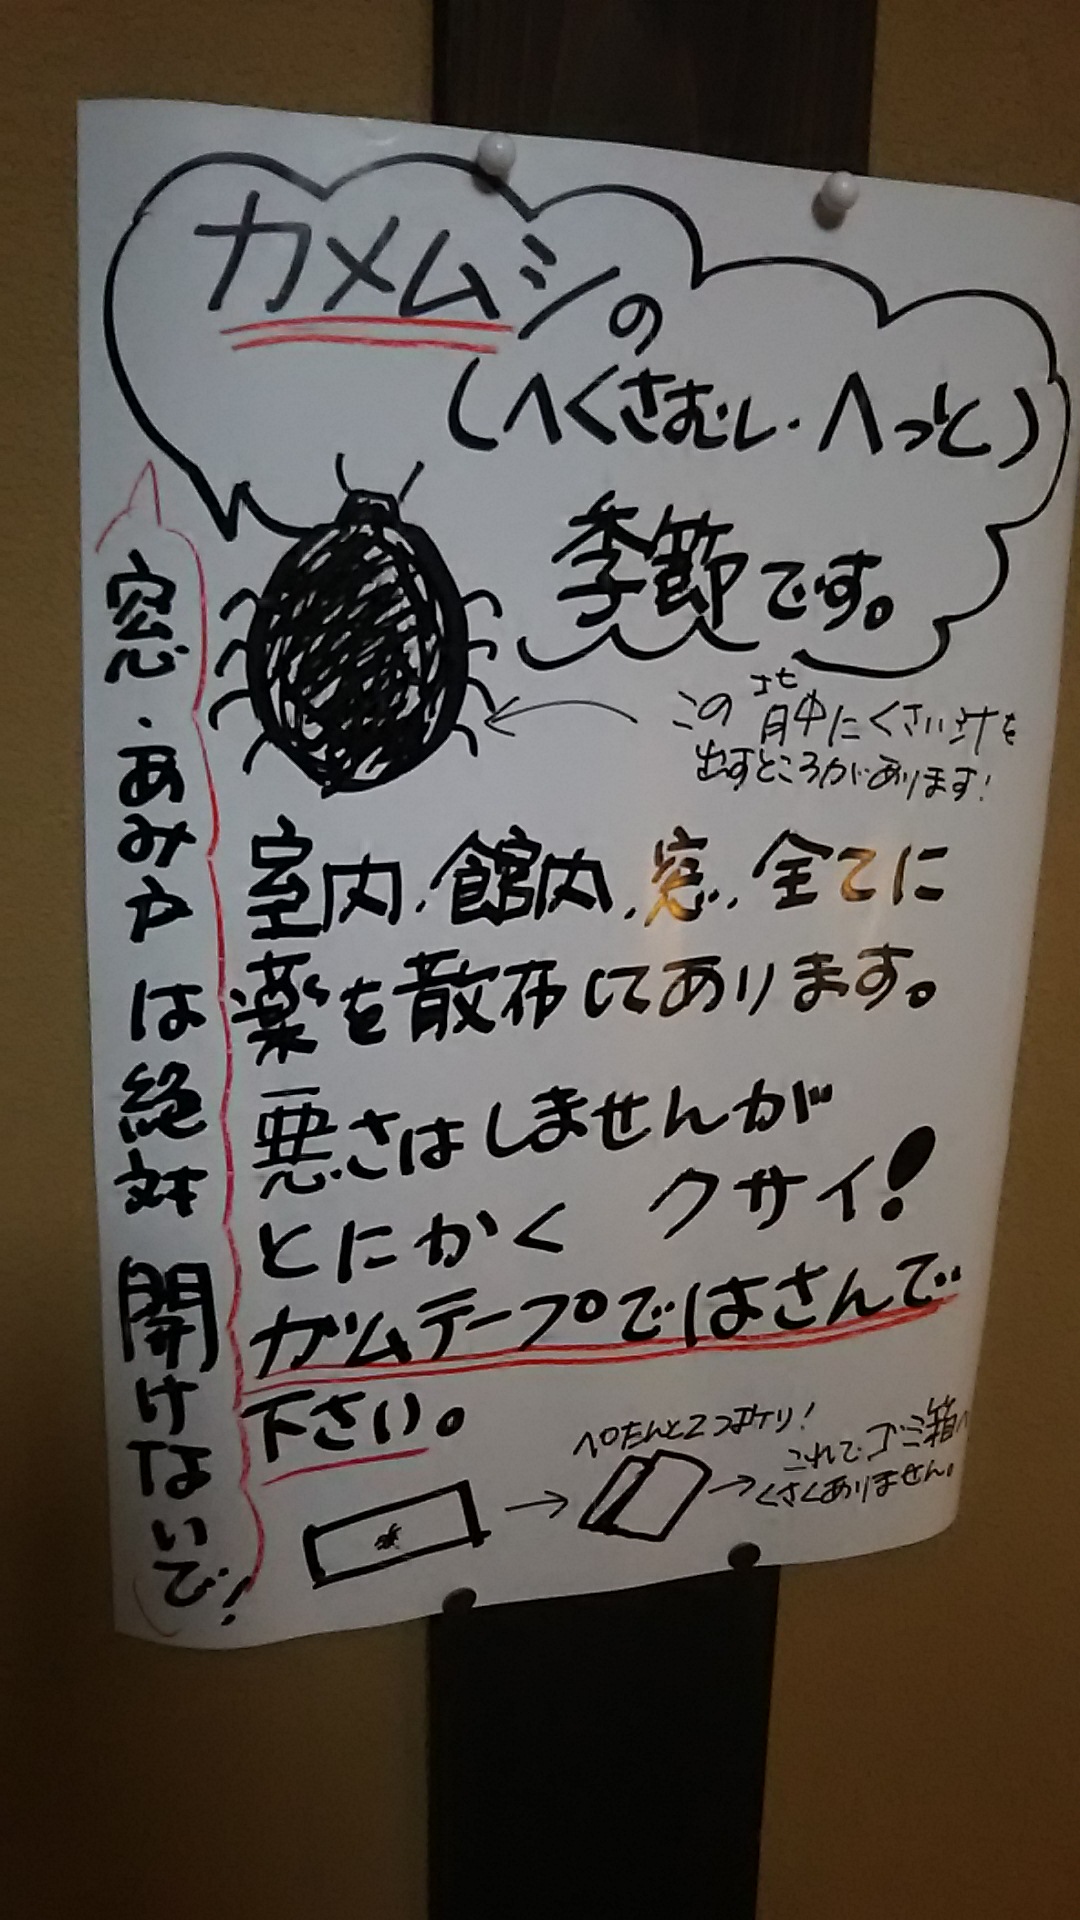 カメムシの
(へくさむし・へっと)
季節です。
この背中にくさい汁を
出すところがあります!
室内、館内、窓、全てに
薬を散布してあります。
悪さはしませんが
とにかく クサイ!
ガムテープではさんで
下さい。
ペたんと2つ折り!
これでゴミ箱へ
くさくありません。
窓・あみやは絶対開けないで!